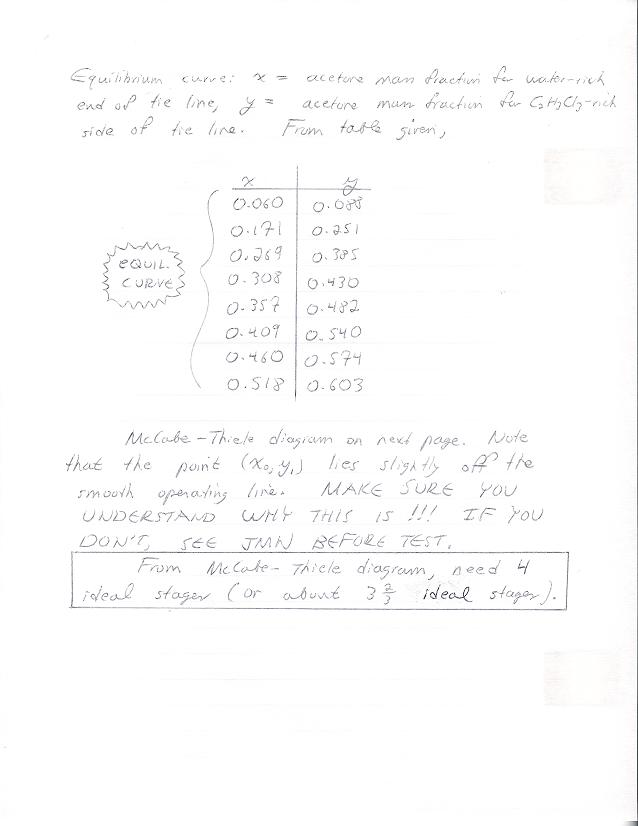 Equilibrium curve: x = acetone mass fraction for water-rich
end of tie line, y = acetone mass fraction for C2H3Cl3-rich
side of tie line. From table given,
x y
0.060 0.088
0.171 0.251
0.269 0.385
0.308 0.430
0.357 0.482
0.409 0.540
0.460 0.574
0.518 0.603
EQUIL.
CURVE
McCabe-Thiele diagram on next page. Note
that the point (x0, y1) lies slightly off the
smooth operating line. MAKE SURE YOU
UNDERSTAND WHY THIS IS !!! IF YOU
DON'T, SEE JMN BEFORE TEST.
From McCabe-Thiele diagram, need 4
ideal stages (or about 3 2/3 ideal stages).